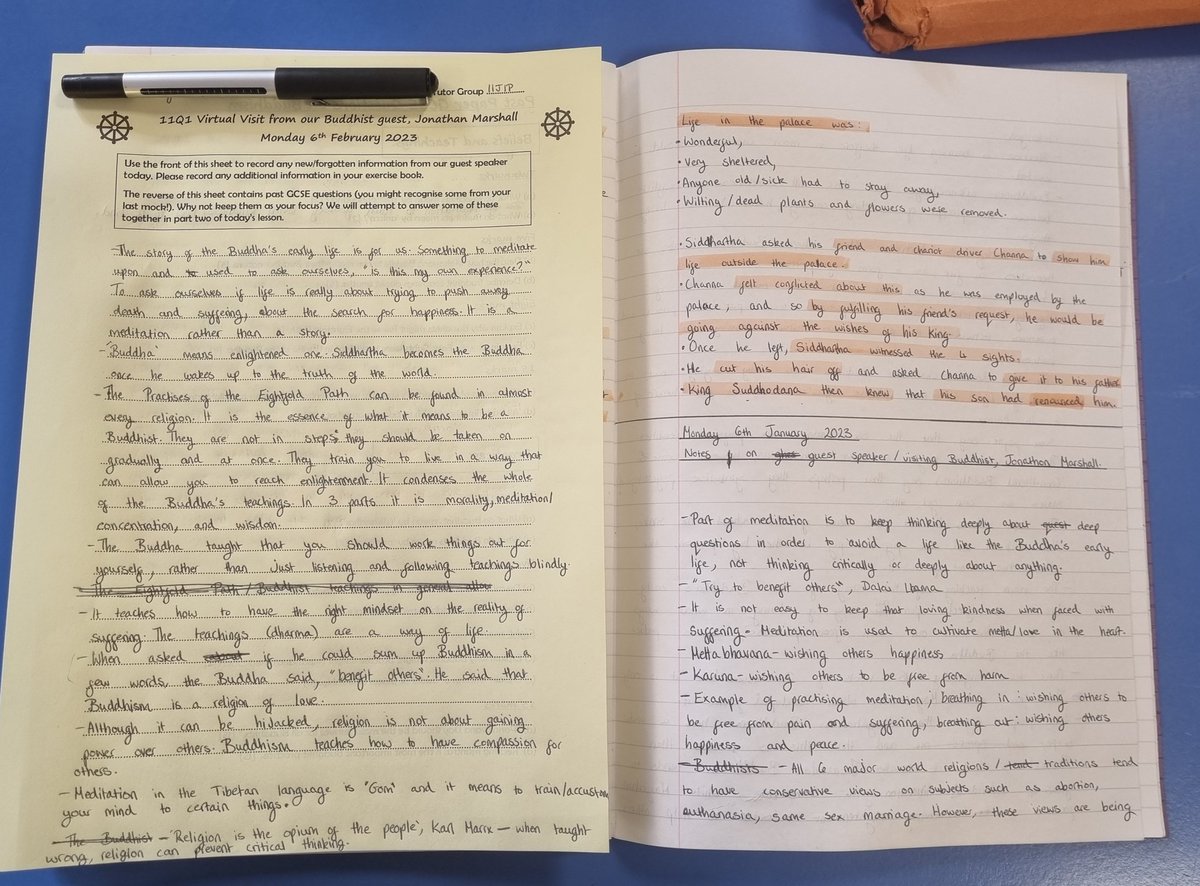 Tutor Group 11J1P
11Q1 Virtual Visit from our Buddhist guest, Jonathan Marshall
Monday 6th February 2023
Use the front of this sheet to record any new/forgotten information from our guest speaker
today. Please record any additional information in your exercise book.
The reverse of this sheet contains past GCSE questions (you might recognise some from your
last mock!). Why not keep them as your focus? We will attempt to answer some of these
together in part two of today's lesson.
-The story of the Buddha's early life is for us. Something to meditate
upon and to used to ask ourselves, "is this my own experience?"
To ask ourselves if life is really about trying to push away
death and suffering, about the search for happiness. It is a
meditation rather than a story.
-'Buddha' means enlightened one. Siddhartha becomes the Buddha
once he wakes up to the truth of the world.
- The Practises of the Eightfold Path can be found in almost
every religion. It is the essence of what it means to be a
Buddhist. They are not in steps; they should be taken on
gradually and at once. They train you to live in a way that
can allow you to reach enlightenment. It condenses the whole
of the Buddha's teachings. In 3 parts it is morality, meditation/
concentration, and wisdom.
- The Buddha taught that you should work things out for
yourself, rather than Just listening and following teachings blindly.
The Eightfold Path / Buddhist teachings in general allow
- It teaches how to have the right mindset on the reality of
suffering. The teachings (dharma) are a way of life.
- When asked about if he could sum up Buddhism in a
few words, the Buddha said, "benefit others". He said that
Buddhism is a religion of love.
- Although it can be hiJacked, religion is not about gaining
power over others. Buddhism teaches how to have compassion for
others.
- Meditation in the Tibetan language is "Gom" and it means to train/accustom
your mind to certain things.
The Buddhist - 'Religion is the opium of the people', Karl Marx - when taught
wrong, religion can prevent critical thinking.
Life in the palace was:
• Wonderful,
• Very sheltered,
• Anyone old/sick had to stay away,
• Wilting/dead plants and flowers were removed.
• Siddhartha asked his friend and chariot driver Channa to show him
life outside the palace.
• Channa felt conflicted about this as he was employed by the
palace, and so by fulfilling his friend's request, he would be
going against the wishes of his King.
• Once he left, Siddhartha witnessed the 4 sights.
• He cut his hair off and asked Channa to give it to his father
• King Suddhodana then knew that his son had renounced him.
Monday 6th January 2023
Notes on guest speaker/visiting Buddhist, Jonathon Marshall.
- Part of meditation is to keep thinking deeply about quest deep
questions in order to avoid a life like the Buddha's early
life, not thinking critically or deeply about anything.
- "Try to benefit others", Dalai Llama
- It is not easy to keep that loving kindness when faced with
suffering. Meditation is used to cultivate metta/love in the heart.
- Metta bhavana - wishing others happiness
- Karuna - wishing others to be free from harm
- Example of practising meditation; breathing in: wishing others to
be free from pain and suffering, breathing out: wishing others
happiness and peace.
Buddhists - All 6 major world religions / traditions tend
to have conservative views on subjects such as abortion,
euthanasia, same sex marriage. However, these views are being